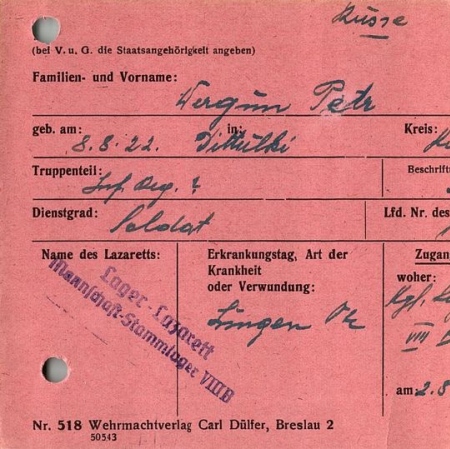 Russe
(bei V. u. G. die Staatsangehörigkeit angeben)
Familien- und Vorname:
Wergun Petr
geb. am: 8.8.22. in: Kreis:
Truppenteil: Beschrift
Inf. Reg. ?
Dienstgrad: Soldat Lfd. Nr. des
Name des Lazaretts: Erkrankungstag, Art der Krankheit oder Verwundung: Zugan
woher:
Lager-Lazarett
Mannschaft-Stammlager VIII B
Lungen
Kgf. La
VIII
am: 2.8
Nr. 518 Wehrmachtverlag Carl Dülfer, Breslau 2
50543